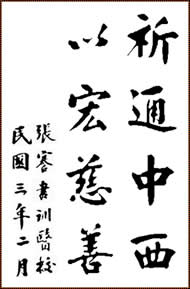 祈通中西
以宏慈善
張謇書訓醫校
民國三年二月